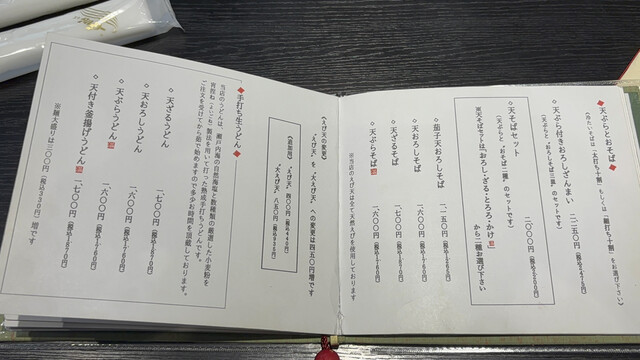 ◆天ぷらとおそば◆
(冷たいそばは、「太打ち十割」もしくは「細打ち十割」をお選び下さい)
◇天ぷら付きおろしざんまい 二二五〇円(税込2475円)
(天ぷらと、「おろしそば三皿」のセットです)
◇天そばセット 二〇〇〇円(税込2200円)
(天ぷらと、「おそば二種」のセットです)
※天そばセットは、「おろし・ざる・とろろ・かけ」
から二種お選び下さい
◇茄子天おろしそば 二一五〇円
◇天おろしそば 一六〇〇円(税込1760円)
◇天ざるそば 一七〇〇円(税込1870円)
◇天ぷらそば 一六〇〇円(税込1760円)
※当店のえび天は全て天然えびを使用しております
《えび天の変更》
“えび天”を“大えび天”への変更は四五〇円増です
《追加用》
“えび天” 四〇〇円(税込440円)
“大えび天” 八五〇円(税込935円)
◆手打ち生うどん◆
当店のうどんは、瀬戸内海の自然海塩と数種類の厳選した小麦粉を
製法を用いて打った熟成手打ちうどんです。
ご注文を受けてから茹で始めますので多少お時間を頂戴しております。
◇天ざるうどん 一七〇〇円(税込1870円)
◇天おろしうどん 一六〇〇円(税込1760円)
◇天ぷらうどん 一六〇〇円(税込1760円)
◇天付き釜揚げうどん 一七〇〇円(税込1870円)
※麺大盛りは三〇〇円(税込330円)増です